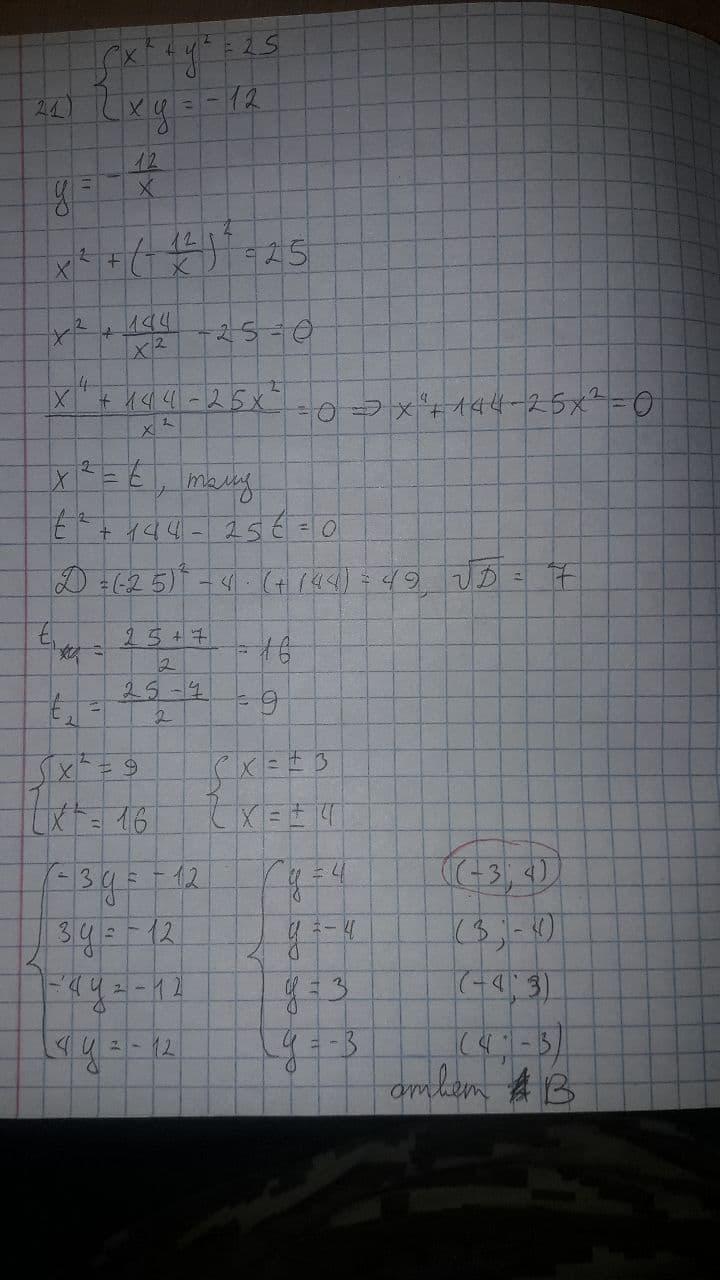 21) { x² + y² = 25
xy = -12
y = - 12/x
x² + (- 12/x)² = 25
x² + 144/x² - 25 = 0
(x⁴ + 144 - 25x²)/x² = 0 => x⁴ + 144 - 25x² = 0
x² = t, тому
t² + 144 - 25t = 0
D = (-25)² - 4 · (+144) = 49, √D = 7
t₁ = (25 + 7)/2 = 16
t₂ = (25 - 7)/2 = 9
{ x² = 9 { x = ± 3
x² = 16 x = ± 4
{ -3y = -12 { y = 4 (-3; 4)
3y = -12 y = -4 (3; -4)
-4y = -12 y = 3 (-4; 3)
4y = -12 y = -3 (4; -3)
ответ B